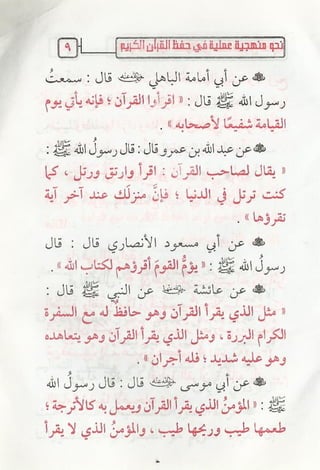 نحو منهجية عملية في حفظ القرآن الكريم ٩
عن أبي أمامة الباهلي رضي الله عنه قال : سمعتُ
رسول الله ﷺ قال : « اقرأوا القرآن ؛ فإنه يأتي يوم
القيامة شفيعًا لأصحابه » .
عن عبد الله بن عمرو قال : قال رسولُ الله ﷺ :
« يقال لصاحب القرآن : اقرأ وارتق ورتل ، كما
كنت ترتل في الدنيا ؛ فإنَّ منزلَك عند آخر آية
تقرؤها » .
عن أبي مسعود الأنصاري قال : قال
رسولُ الله ﷺ : « يؤمُّ القومَ أقرؤهم لكتاب الله » .
عن عائشة رضي الله عنها عن النبي ﷺ قال :
« مثل الذي يقرأ القرآن وهو حافظٌ له مع السفرة
الكرام البررة ، ومثل الذي يقرأ القرآن وهو يتعاهده
وهو عليه شديد ؛ فله أجران » .
عن أبي موسى رضي الله عنه قال : قال رسولُ الله
ﷺ : « المؤمنُ الذي يقرأ القرآن ويعمل به كالأترجة ؛
طعمها طيب وريحها طيب ، والمؤمنُ الذي لا يقرأ